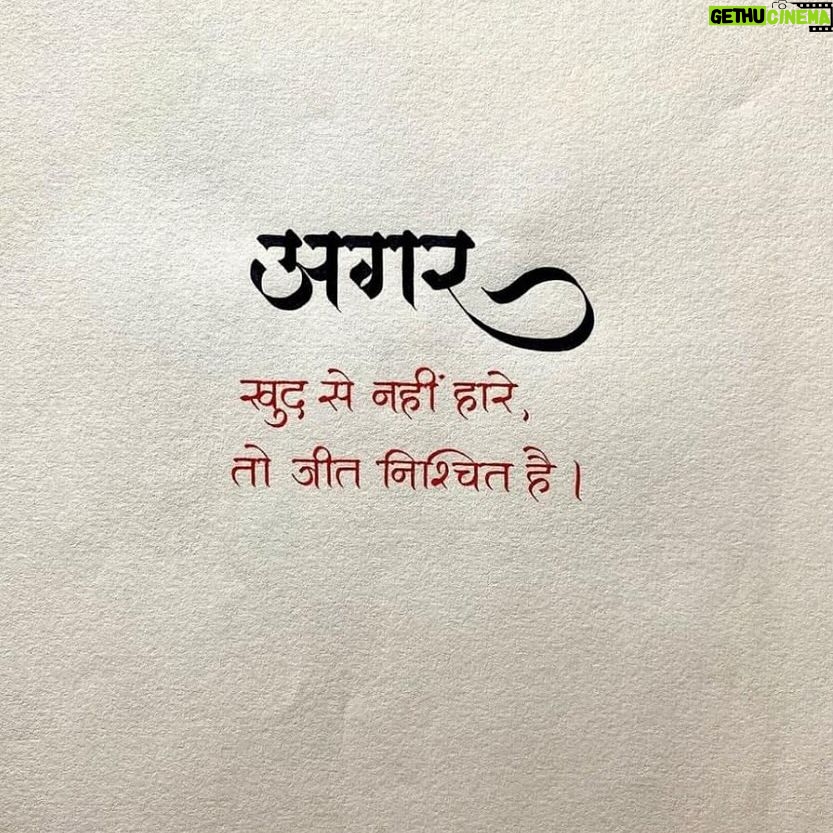 GETHUCINEMA
अगर
खुद से नहीं हारे,
तो जीत निश्चित है।